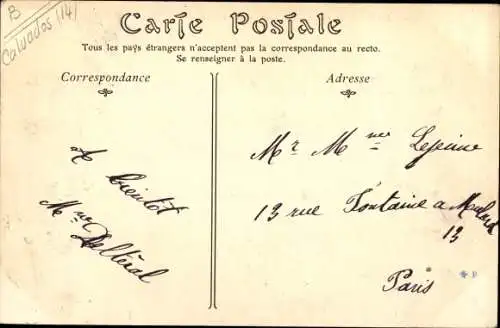 B
Calvados (14)
Carte Postale
Tous les pays étrangers n'acceptent pas la correspondance au recto.
Se renseigner à la poste.
Correspondance
Adresse
A bientôt
Mme
Mr Mme Lejeune
13 rue Fontaine a Mulard
13
Paris